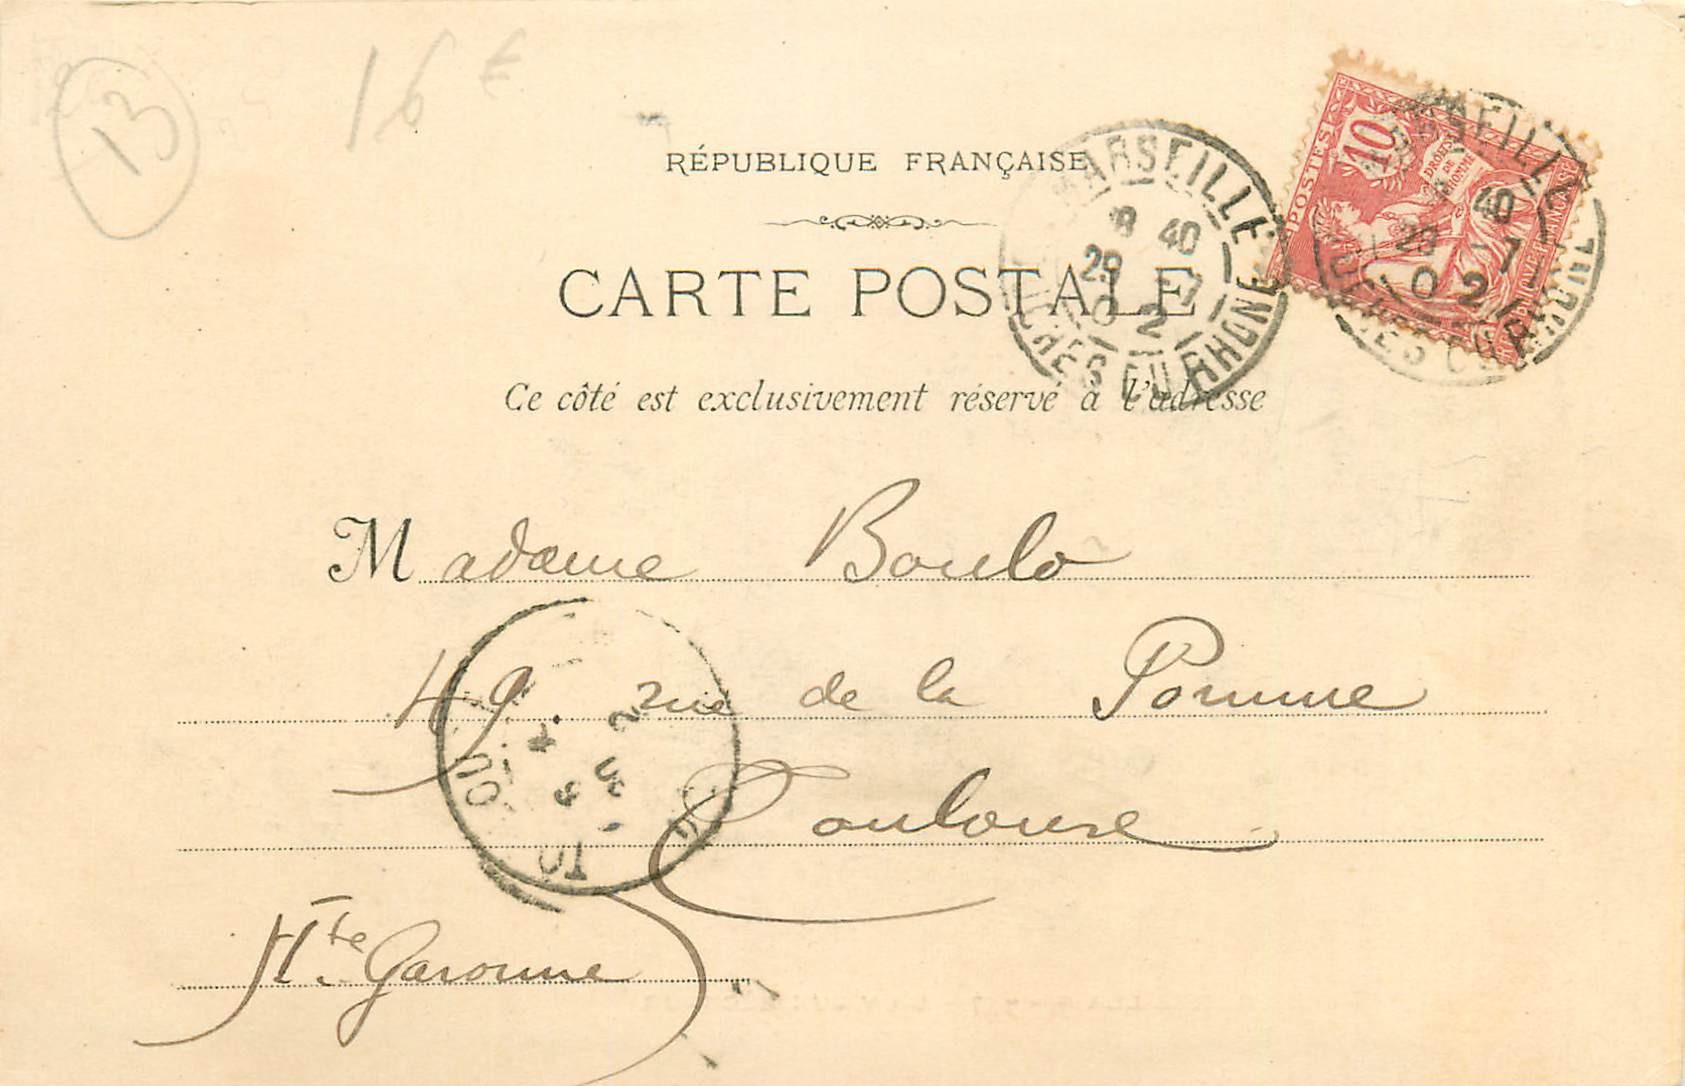 13
16 €
RÉPUBLIQUE FRANÇAISE
CARTE POSTALE
Ce côté est exclusivement réservé à l'adresse
MARSEILLE
8 40
29 -7
02
BOUCHES DU RHONE
POSTES
10
DROITS
DE
L'HOMME
MARSEILLE
8 40
29 -7
02
BOUCHES DU RHONE
Madame Boulo
49 rue de la Pomme
Toulouse
Hte Garonne